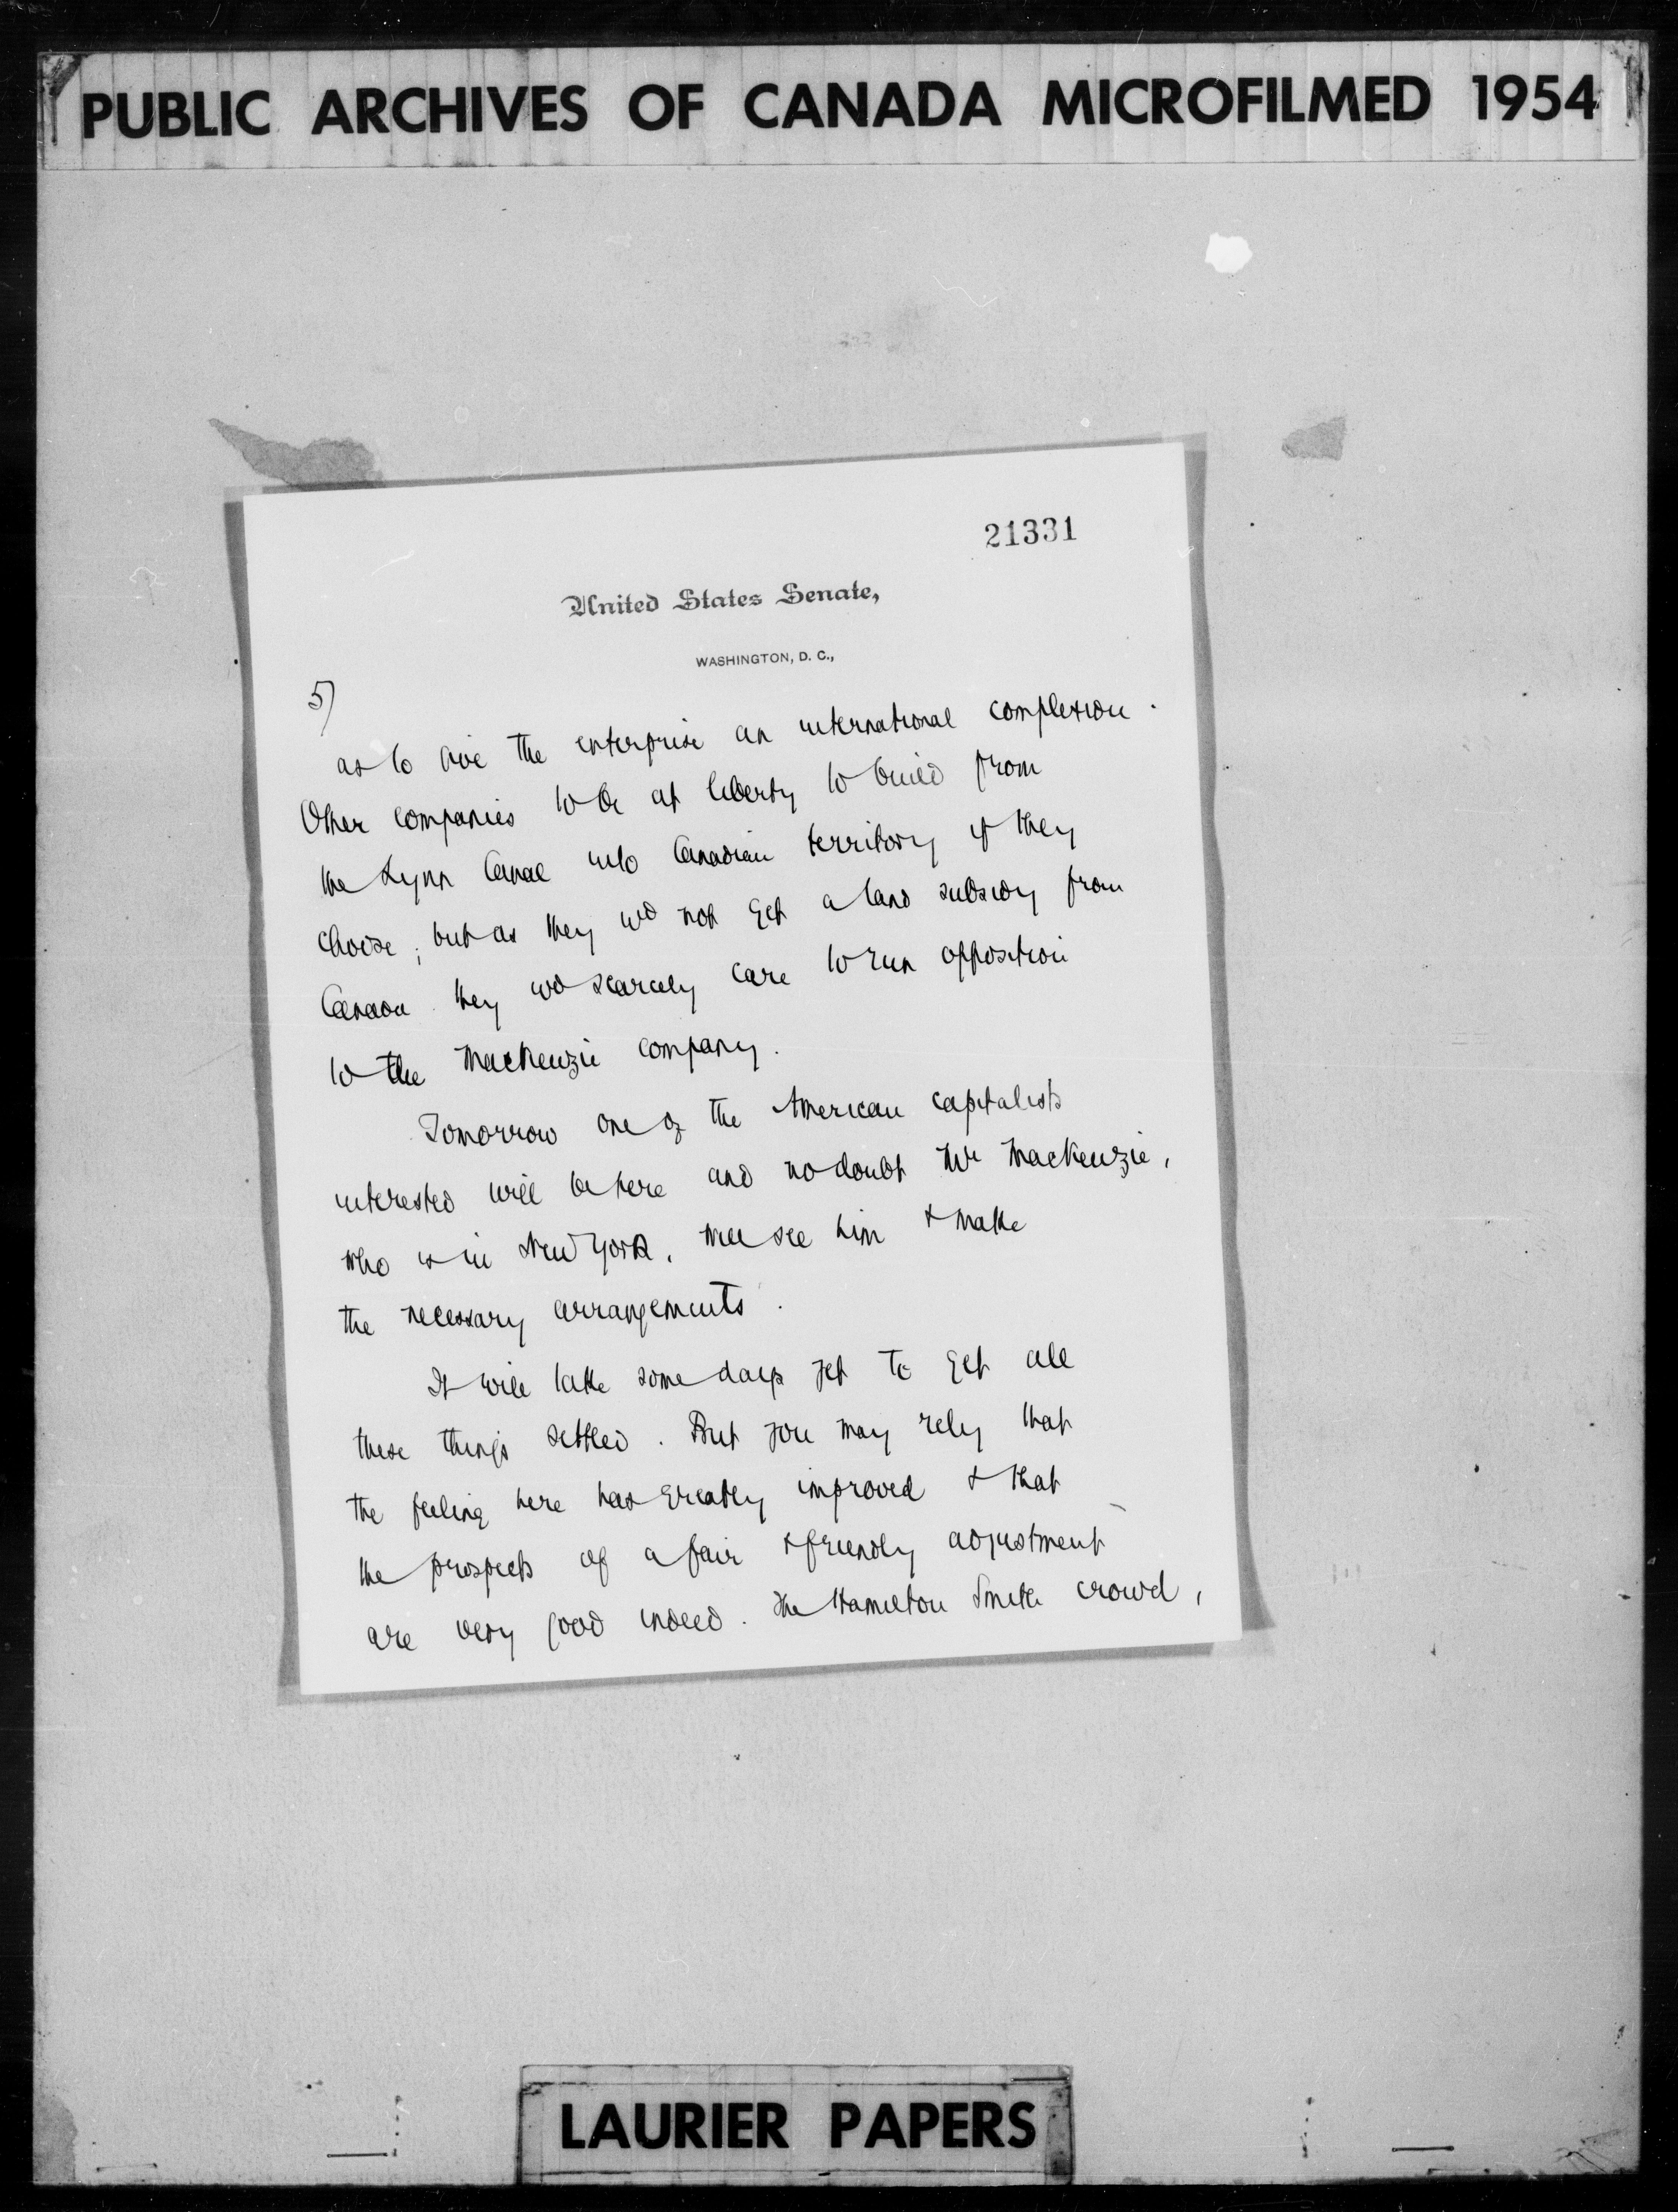 PUBLIC ARCHIVES OF CANADA MICROFILMED 1954
21331
United States Senate,
WASHINGTON, D. C.,
5)
as to give the enterprise an international complexion.
Other companies to be at liberty to build from
the Lynn Canal into Canadian territory if they
choose; but as they wd not get a land subsidy from
Canada they wd scarcely care to run opposition
to the MacKenzie company.
Tomorrow one of the American capitalists
interested will be here and no doubt Mr MacKenzie,
who is in New York, will see him & make
the necessary arrangements.
It will take some days yet to get all
these things settled. But you may rely that
the feeling here has greatly improved & that
the prospects of a fair & friendly adjustment
are very good indeed. The Hamilton Smith crowd,
LAURIER PAPERS